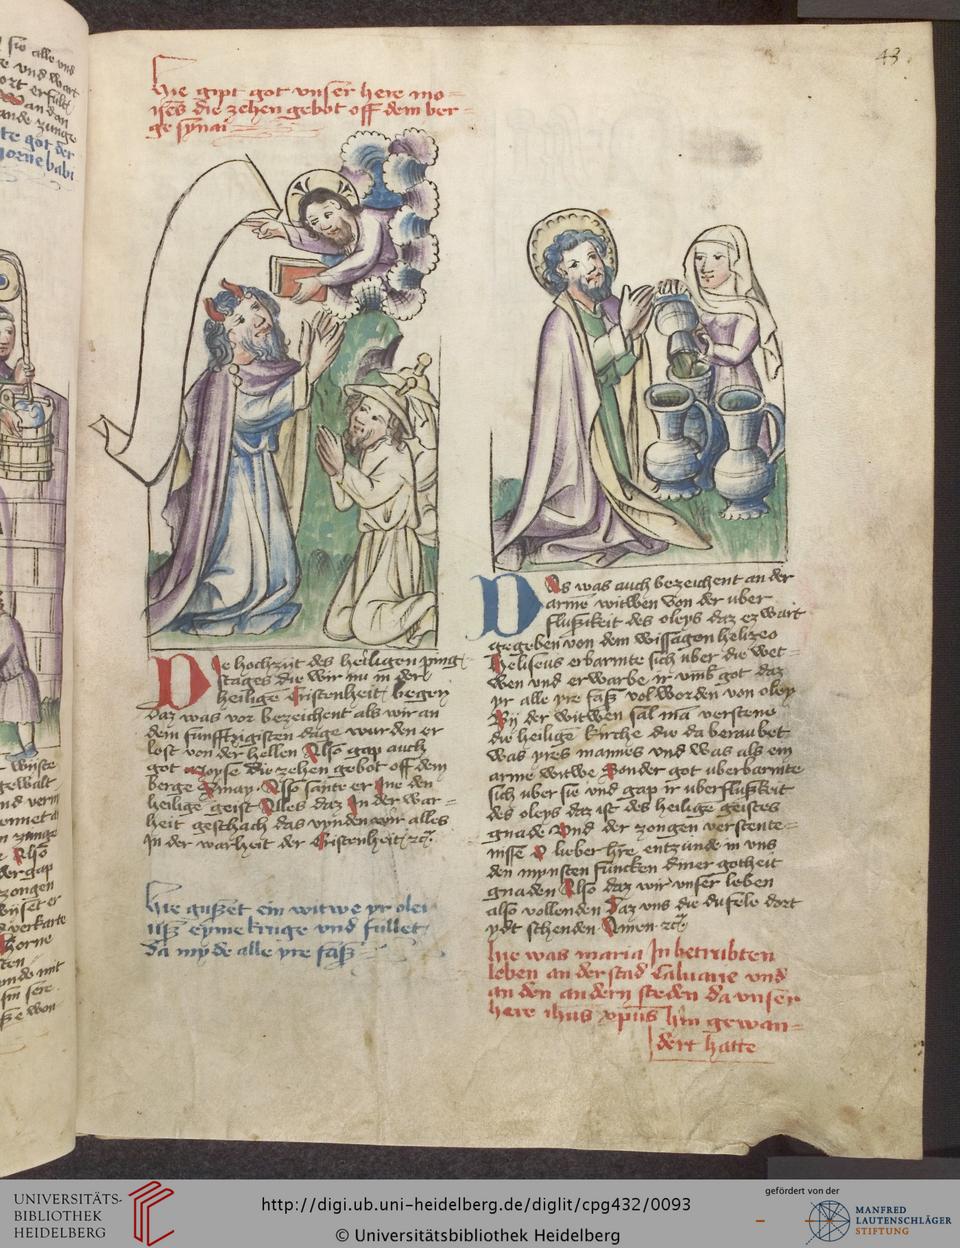 43
Hie gipt got vnser here mo-
ises die zehen gebot off dem ber-
ge synai
Die hochzijt des heiligen ping
stages die wir nu in der
heilige Cristenheit begen
daz was vor bezeichent als wir an
dem funfftzigisten dage wurden er
lost von der hellen Also gap auch
got moyse die zehen gebot off dem
berge Synay Also sante er Ine den
heilige geist Alles daz In der war-
heit geschach das vynden wir alles
In der warheit der Cristenheit
Hie gusset ein witwe yr olei
uß eyme kruge vnd fullet
da myde alle yre faß
Das was auch bezeichent an der
arme witwen von der uber
flussikeit des oleys daz ez wart
gegeben von dem wissagen helizeo
Heliseus erbarmte sich uber die wet-
wen vnd erwarbe ir vmb got daz
yr alle yre faß vol worden von oley
By der witwen sal man verstene
die heilige kirche die da beraubet
was yres mannes vnd was als ein
arme witwe Sonder got uberbarmte
sich uber sie vnd gap ir uberflussikeit
des oleys daz ist des heilige geistes
gnade Vnd der zongen verstente-
nisse O lieber hre entzunde in vns
den mynsten funcken diner gotheit
gnaden Also daz wir vnser leben
also vollenden Daz vns die dufele dort
ydt schenden Amen
Hie was maria In betrubten
leben an der stad Caluarie vnd
an den andern steden da vnser
here ihus xpus hin gewan-
dert hatte
UNIVERSITÄTS-
BIBLIOTHEK
HEIDELBERG
http://digi.ub.uni-heidelberg.de/diglit/cpg432/0093
© Universitätsbibliothek Heidelberg
gefördert von der
MANFRED
LAUTENSCHLÄGER
STIFTUNG